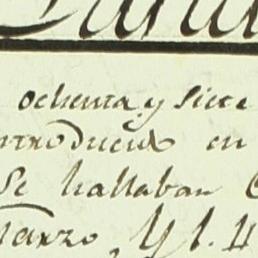 ochenta, y siete
introducido en
Se hallaban
Marzo, Y l.